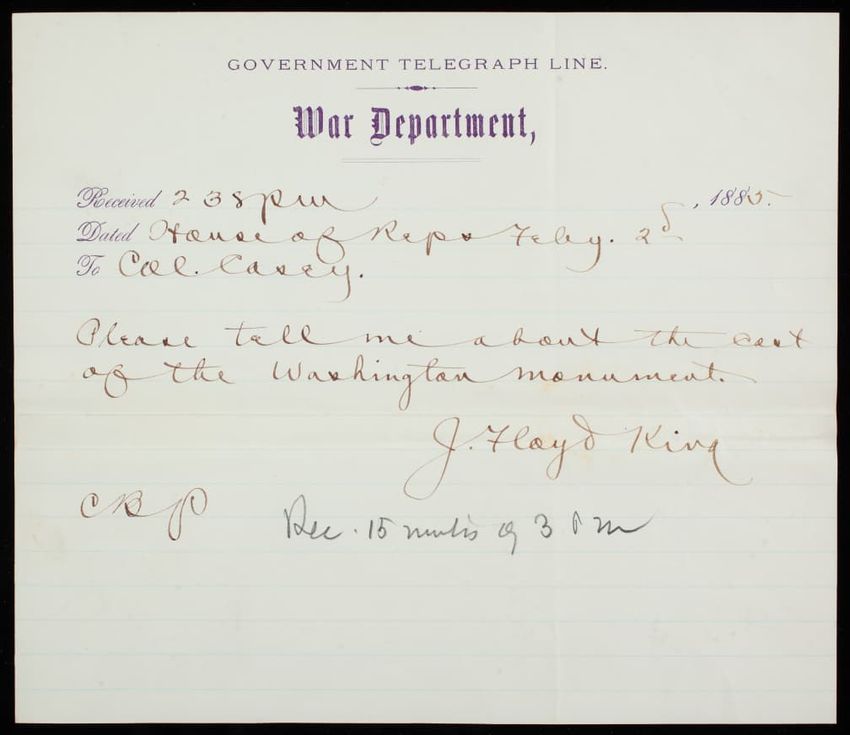 GOVERNMENT TELEGRAPH LINE.
War Department,
Received 2 38 pm , 1885.
Dated House of Reps Feby. 2d
To Col. Casey.
Please tell me about the cost
of the Washington monument.
J. Floyd King
CBP
Rec. 15 of 3 PM